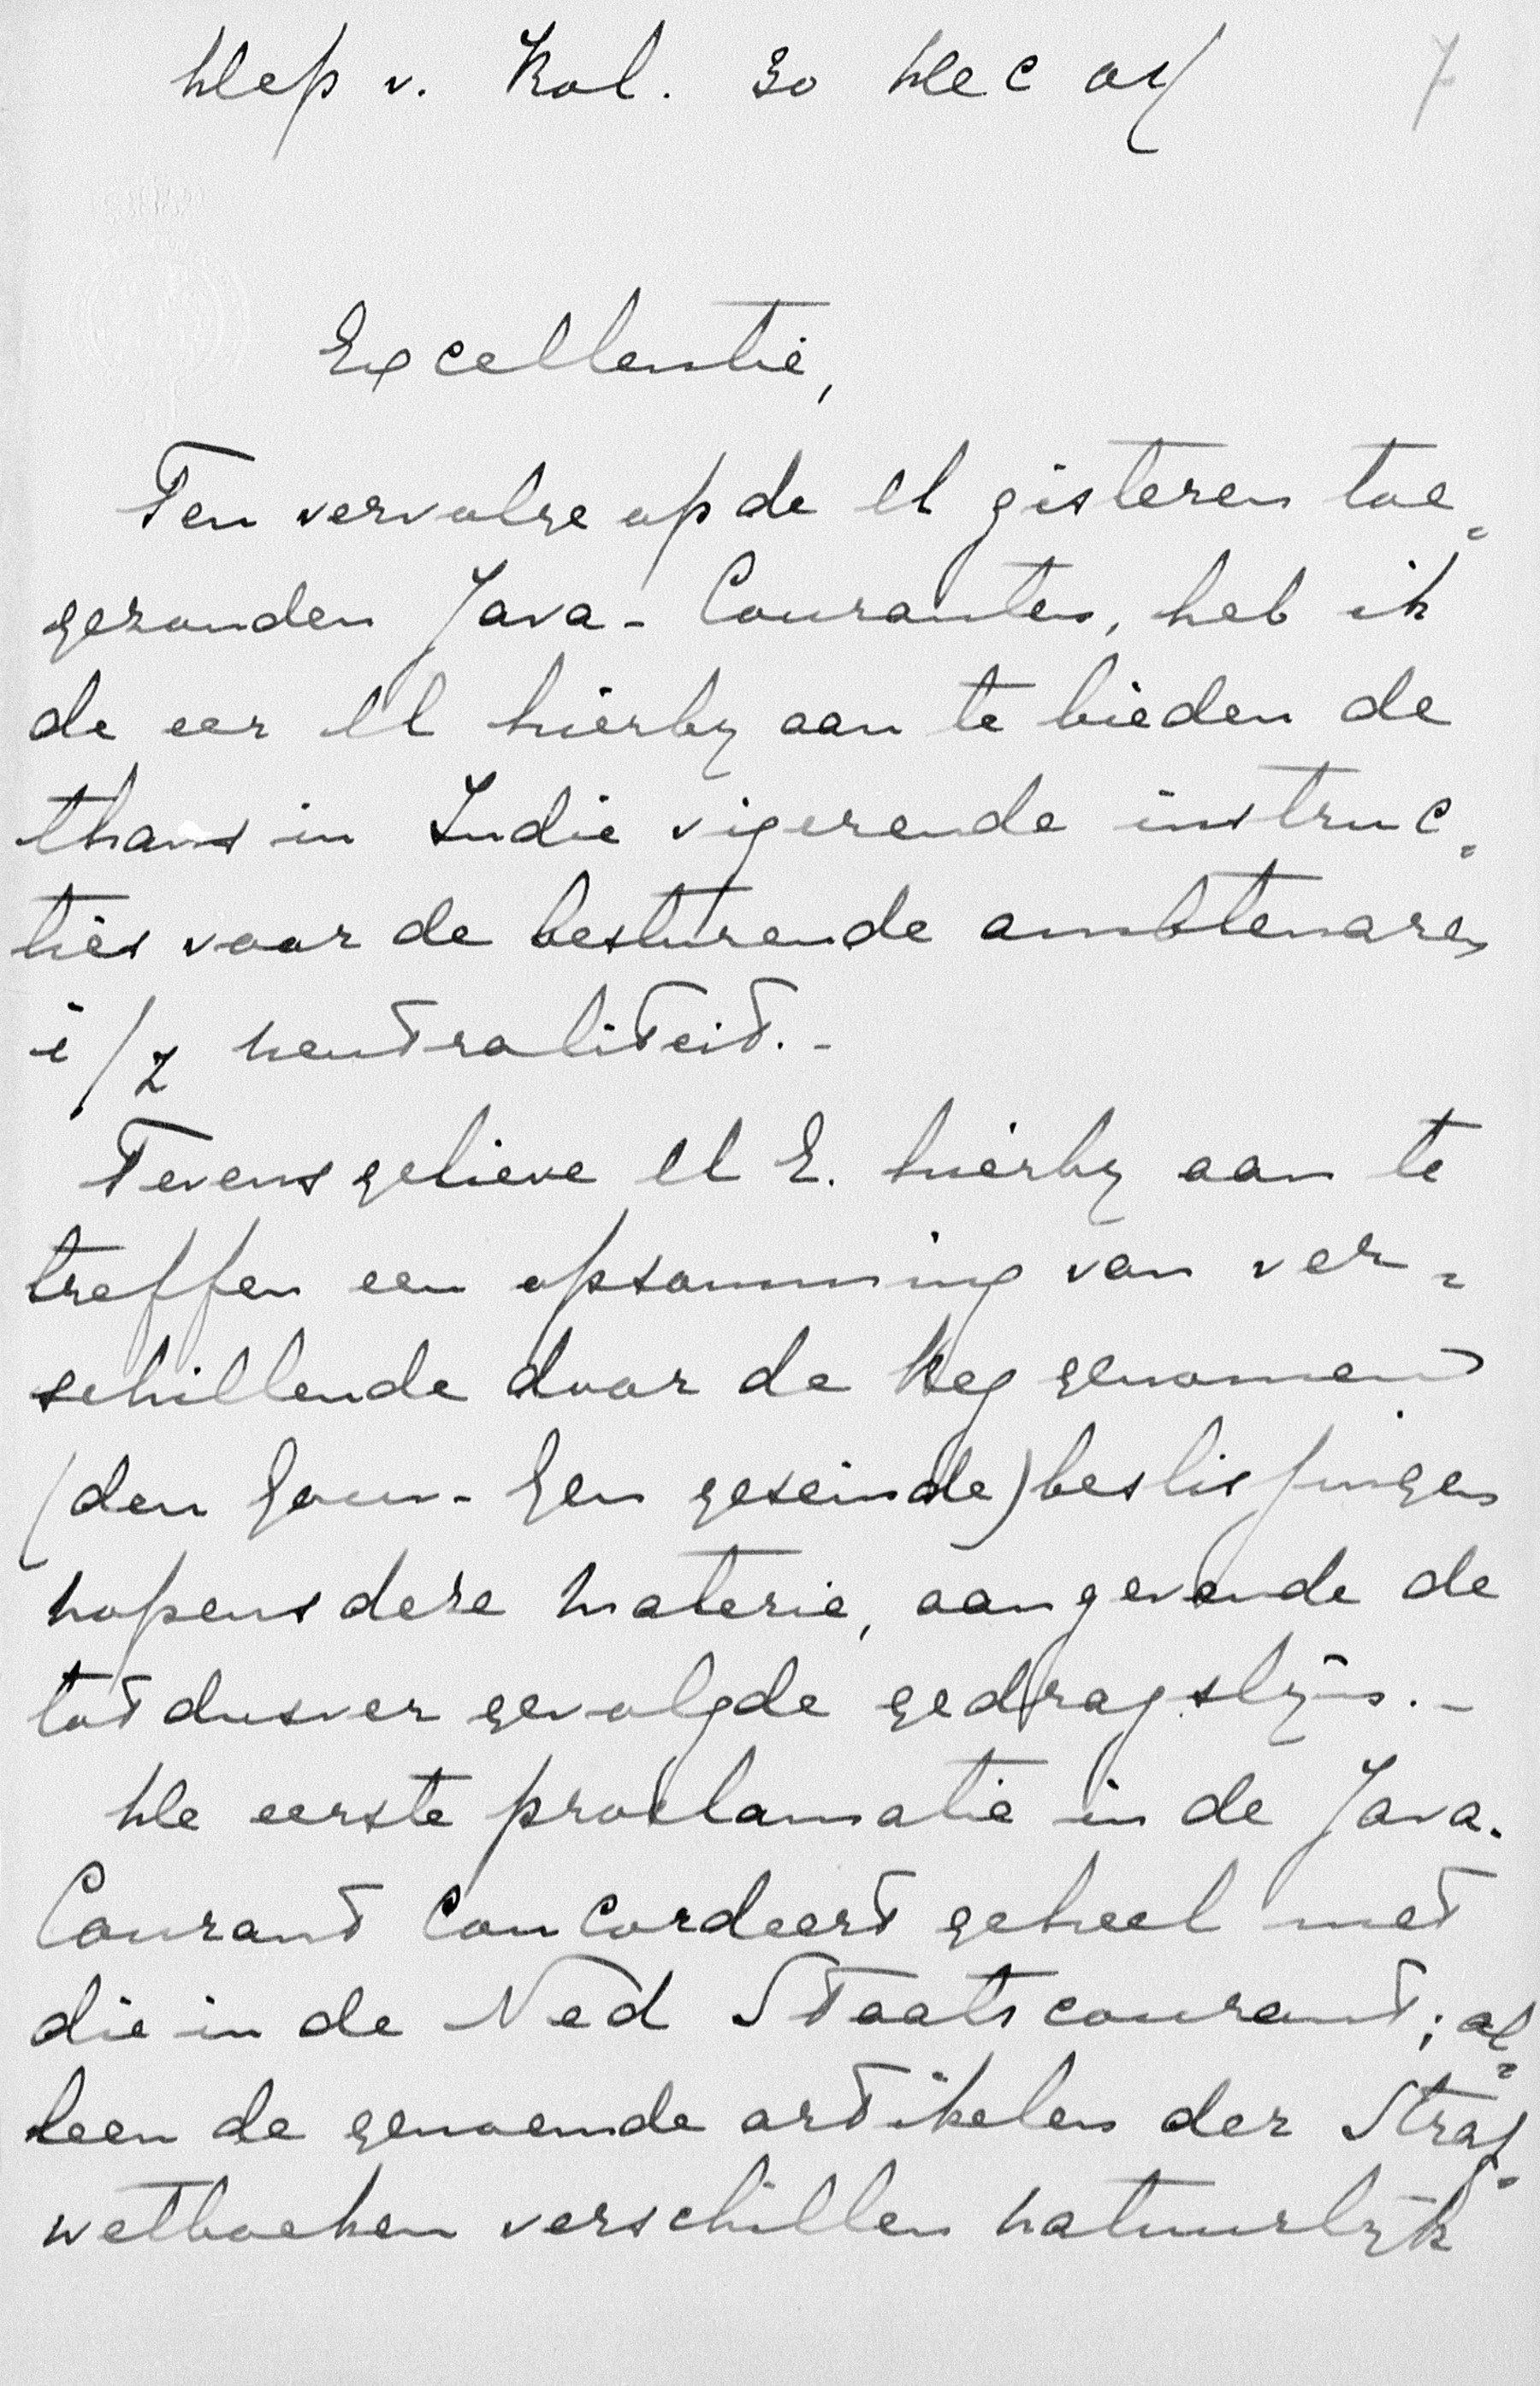 Dep v. Kol. 30 Dec 04
7
Excellentie,
Ten vervolge op de U gisteren toe=
gezonden Java-Couranten, heb ik
de eer U hierby aan te bieden de
thans in Indie vigerende instruc=
ties voor de besturende ambtenaren
i/z neutraliteit.-
Tevens gelieve U E. hierby aan te
treffen een opsomming van ver=
schillende door de Reg genomen
(den Gouv-Gen geseinde) beslissingen
nopens deze materie, aangevende de
tot dusver gevolgde gedragslyn.-
De eerste proclamatie in de Java-
Courant concordeert geheel met
die in de Ned Staatscourant; al=
leen de genoemde artikelen der Straf=
wetboeken verschillen natuurlyk